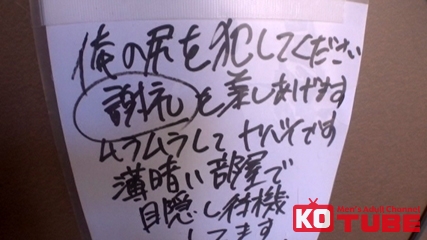 俺の尻を犯してください
謝礼を差しあげます
ムラムラして ヤバイです
薄暗い部屋で
目隠し待機
してます
Men's Adult Channel
KO TUBE